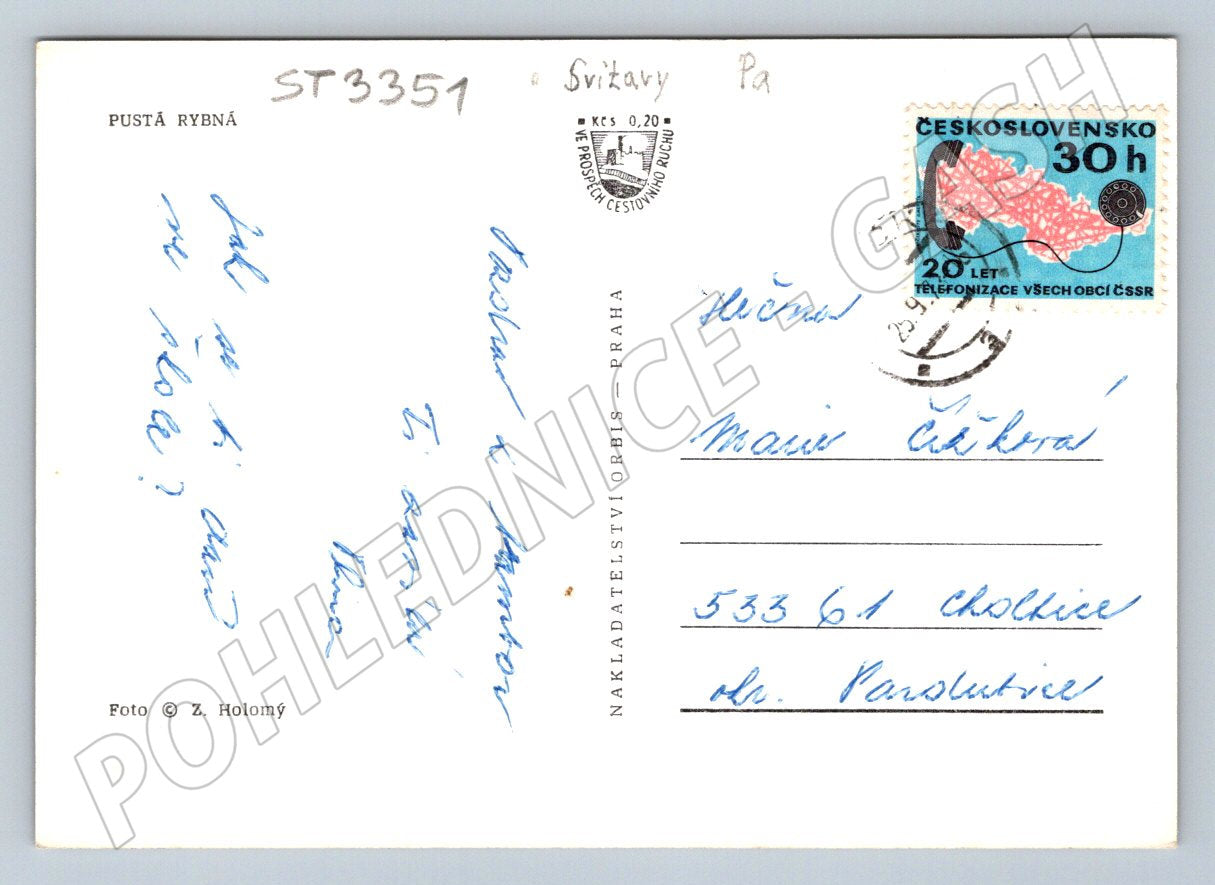 ST3351
Svitavy Pa
PUSTÁ RYBNÁ
Kčs 0,20
VE PROSPĚCH CESTOVNÍHO RUCHU
ČESKOSLOVENSKO
30 h
20 LET
TELEFONIZACE VŠECH OBCÍ ČSSR
Jak se ti
ve škole?
Pozdrav z
Ti
NAKLADATELSTVÍ ORBIS — PRAHA
Slečna
Marie Čížková
533 61 Choltice
okr. Pardubice
Foto © Z. Holomý
POHLEDNICE - GASH